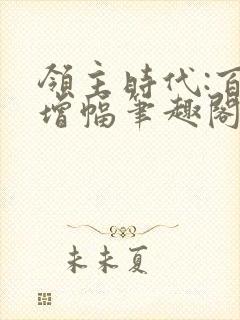 領主時代:百
增幅筆趣閣
未未夏